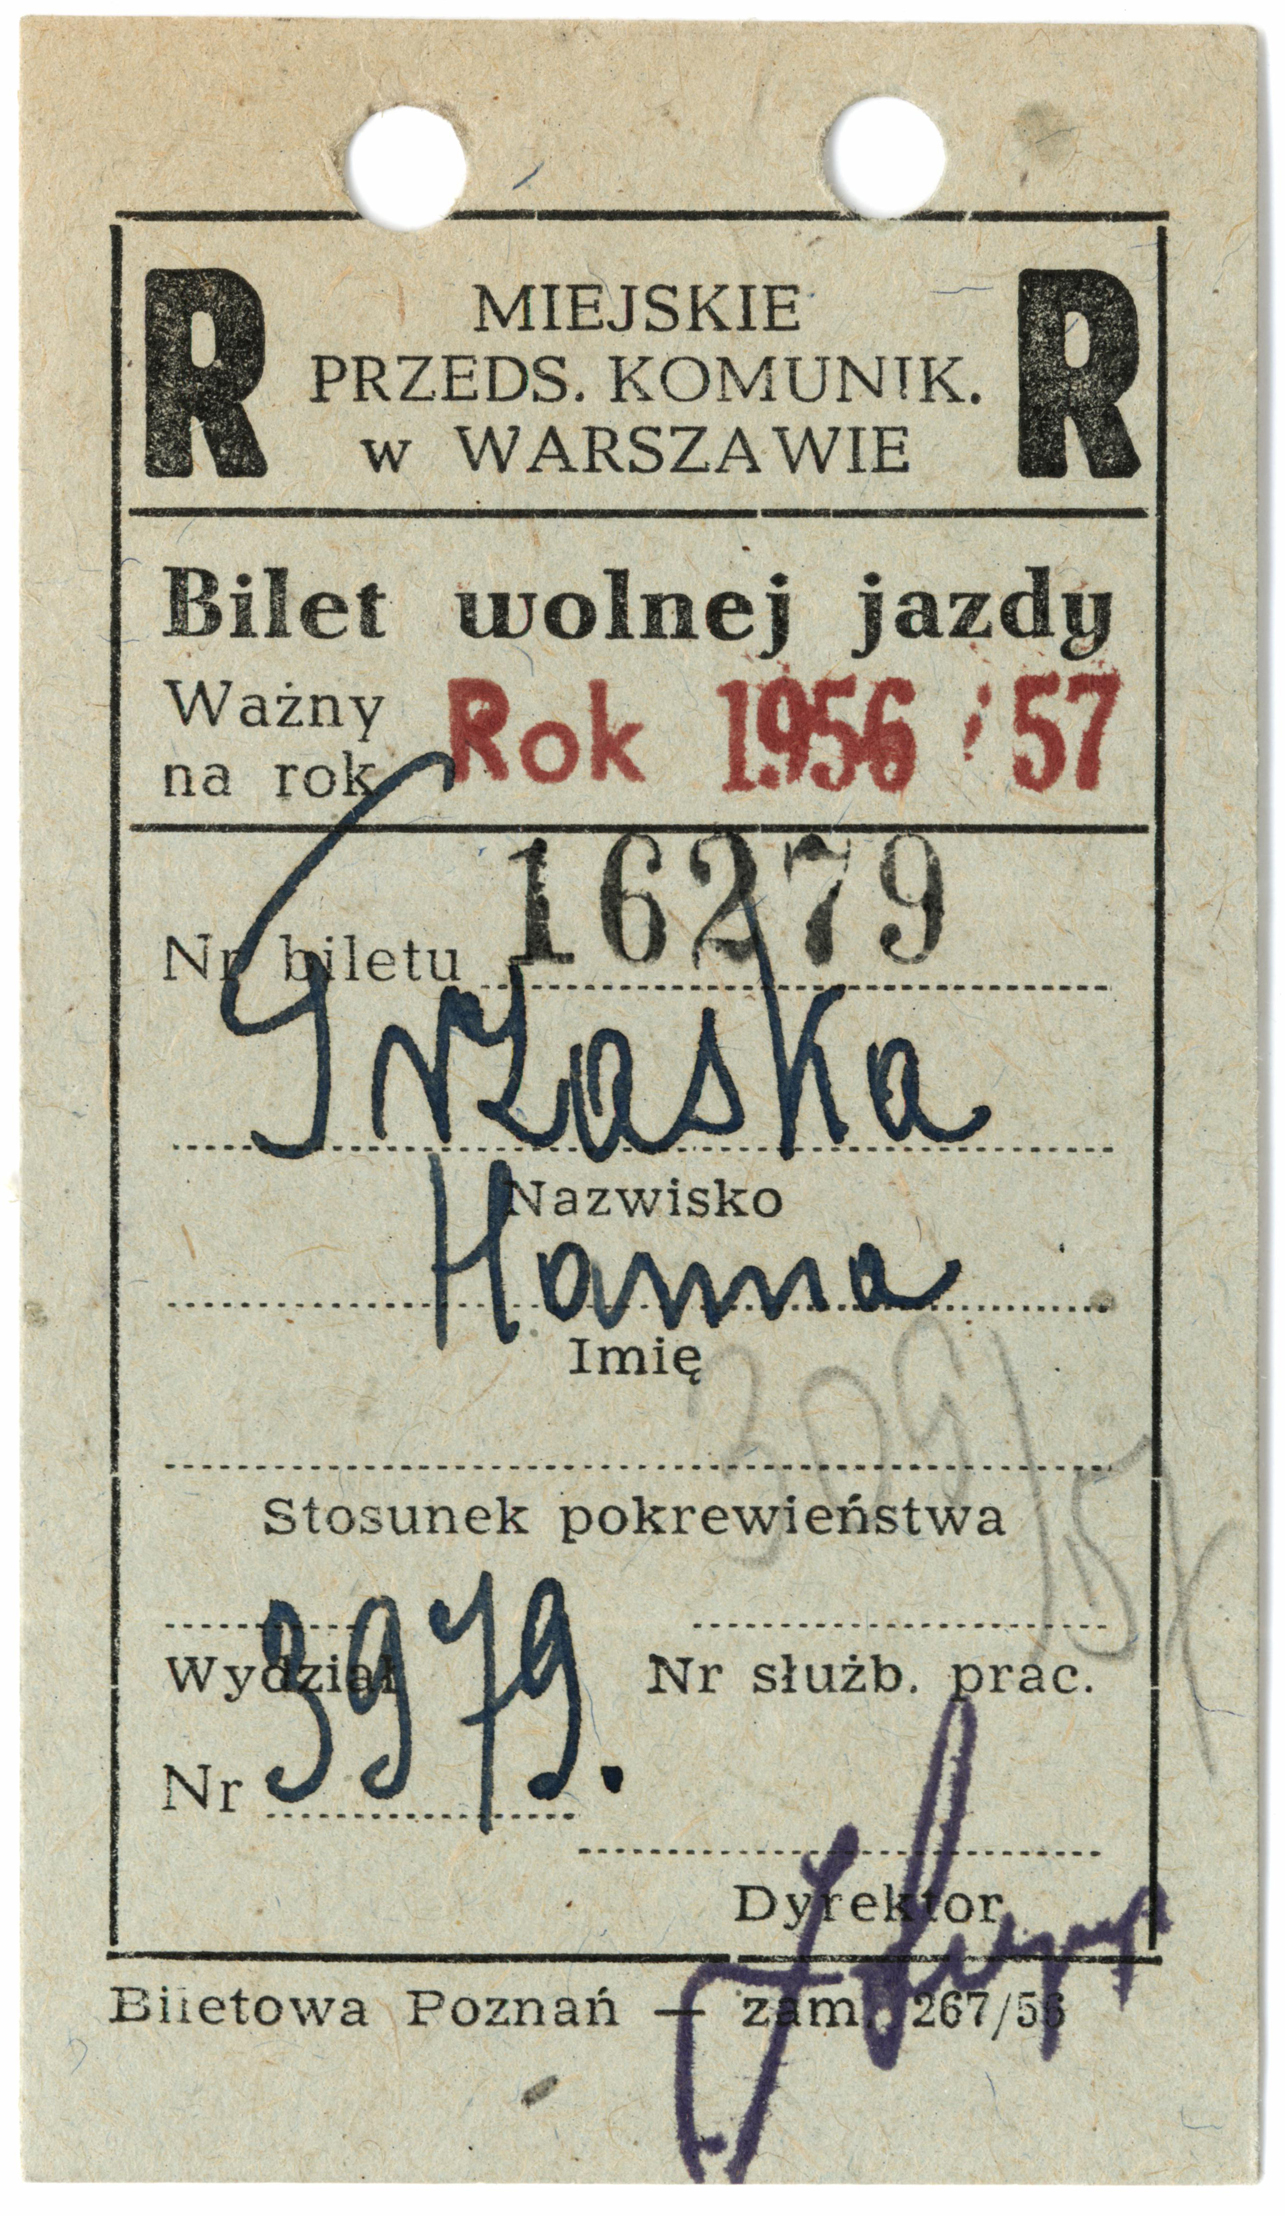 R MIEJSKIE R
PRZEDS. KOMUNIK.
w WARSZAWIE
Bilet wolnej jazdy
Ważny
na rok Rok 1956/57
Nr biletu 16279
Grzaska
Nazwisko
Hanna
Imię
Stosunek pokrewieństwa
Wydział Nr służb. prac.
Nr 3979.
Dyrektor
Biletowa Poznań — zam. 267/56